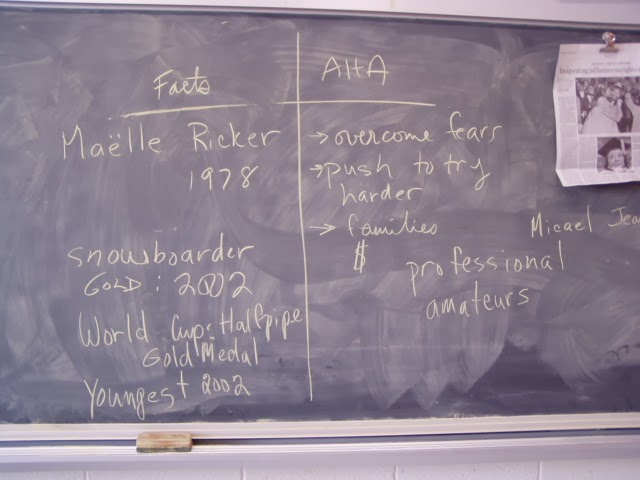 Facts
Maëlle Ricker
1978
snowboarder
GOLD : 2002
World Cup: Halfpipe
Gold Medal
Youngest 2002
AHA
→ overcome fears
→ push to try
harder
→ families
$
professional
amateurs
Micael Jea